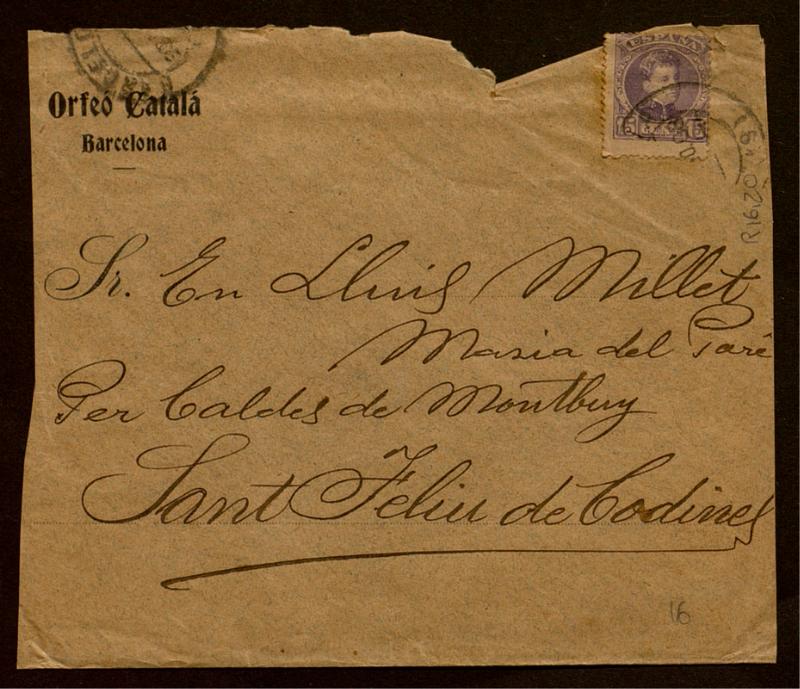 Orfeó Catalá
Barcelona
ESPAÑA
15 15
Sr. En Lluis Millet
Masia del Paré
Per Caldes de Montbuy
Sant Feliu de Codines
16